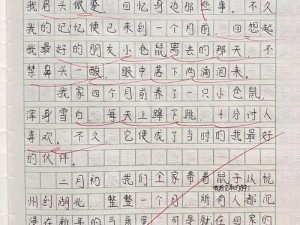 我眉头微蹙，回忆身边那些事，不久
我的记忆便已来到一个月前，回想起
我最好的朋友小仓鼠离去的那天，不
禁鼻头一酸，眼中落下两滴泪来。
我家四个月前养了一只小仓鼠，
浑身雪白，每天上蹿下跳，十分讨人
喜欢，不久，它便成了当时的我最好
的伙伴。
二月初，我们全家带着鼠子从杭
州到湖北，整整一个月，所有人都沉
浸在新年的当